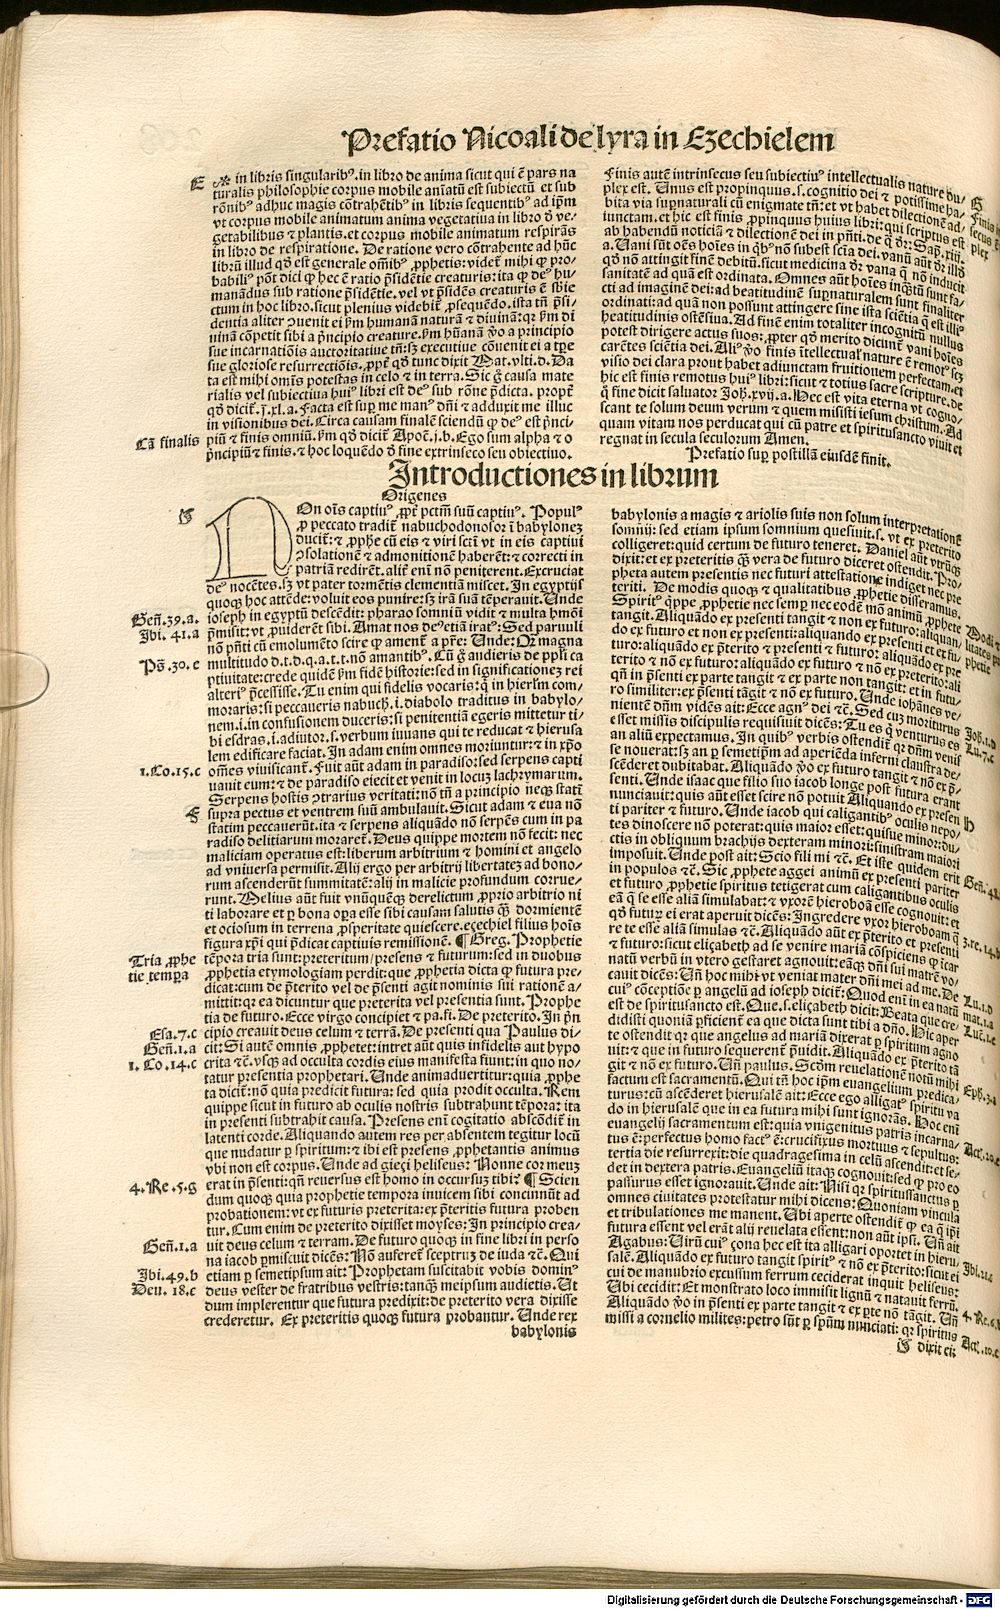 Prefatio Nicoali de lyra in Ezechielem
E
in libris singularibꝰ. in libro de anima sicut qui ē pars na
turalis philosophie corpus mobile aniatū est subiectū et sub
rōnibꝰ adhuc magis cōtrahētibꝰ in libris sequentibꝰ ad ip̄m
vt corpus mobile animatum anima vegetatiua in libro ð ve⸗
getabilibus ⁊ plantis. et corpus mobile animatum respirās
in libro de respiratione. De ratione vero cōtrahente ad hūc
librū illud qð est generale om̄ibꝰ ꝓphetis: videt̄ mihi ꝙ pro⸗
babiliꝰ pōt dici ꝙ hec ē ratio p̄sidētie creaturis: ita ꝙ deꝰ hu⸗
manādus sub ratione p̄sidētie. vel vt p̄sidēs creaturis ē sbie
ctum in hoc libro. sicut plenius videbit̄ ꝓsequēdo. ista tn̄ p̄si⸗
dentia aliter ꝯuenit ei ẜm humanā naturā ⁊ diuinā: qr ẜm di
uinā cōpetit sibi a p̄ncipio creature. ẜm hūanā v̄o a principio
sue incarnatiōis auctoritatiue tn̄: sꝫ executiue cōuenit ei a tp̄e
sue gloriose resurrectiōis. ꝓpt̄ qð tunc dixit Mat. vlti. d. Da
ta est mihi om̄is potestas in celo ⁊ in terra. Sic ḡ causa mate
rialis vel subiectiua huiꝰ libri est deꝰ sub rōne p̄dicta. propt̄
qð dicit̄. j. xl. a. Facta est suꝑ me manꝰ dn̄i ⁊ adduxit me illuc
in visionibus dei. Circa causam finalē sciendū ꝙ deꝰ est p̄nci⸗
Cā finalis
piū ⁊ finis omniū. ẜm qð dicit̄ Apoc̄. j. b. Ego sum alpha ⁊ o
p̄ncipiū ⁊ finis. ⁊ hoc loquēdo ð fine extrinseco seu obiectiuo.
Finis autē intrinsecus seu subiectiuꝰ intellectualis nature du⸗
plex est. Unus est propinquus. s. cognitio dei ⁊ potissime ha⸗
bita via supnaturali cū enigmate tn̄: et vt habet dilectionē ad⸗
iunctam. et hic est finis ꝓpinquus huius libri: qui scriptus est
ab habendū noticiā ⁊ dilectionē dei in pn̄ti. de q̄ dr̄: Sap̄. xiij.
a. Uani sūt oēs hoīes in qͥbꝰ nō subest scīa dei. vanū aūt dr̄ illð
qð nō attingit finē debitū. sicut medicina dr̄ vana q̄ nō inducit
sanitatē ad quā est ordinata. Omnes aūt hoīes inqͣtū sunt fa⸗
cti ad imaginē dei: ad beatitudinē supnaturalem sunt finaliter
ordinati: ad quā non possunt attingere sine ista sciētia q̄ est illiꝰ
beatitudinis ostēsiua. Ad finē enim totaliter incognitū nullus
potest dirigere actus suos: ꝓpter qð merito dicunt̄ vani hoīes
carētes sciētia dei. Aliꝰ v̄o finis ītellectualꝭ nature ē remotꝰ scꝫ
visio dei clara prout habet adiunctam fruitionem perfectam. et
hic est finis remotus huiꝰ libri: sicut ⁊ totius sacre scripture. de
q̄ fine dicit saluator Joh̄. xvij. a. Hec est vita eterna vt cogno⸗
scant te solum deum verum ⁊ quem misisti iesum christum. Ad
quam vitam nos perducat qui cū patre et spiritusancto viuit et
regnat in secula seculorum Amen.
Prefatio suꝑ postillā eiusdē finit.
G
Finis in
secus
plex
Introductiones in librum
Origenes
Non oīs captiuꝰ ꝓpt̄ pctm̄ suū captiuꝰ. Populꝰ
ꝓ peccato tradit̄ nabuchodonosor ī babylonez
ducit̄: ⁊ ꝓphe cū eis ⁊ viri scti vt in eis captiui
ꝯsolationē ⁊ admonitionē haberēt: ⁊ correcti in
patriā redirēt. alie eni nō peniterent. Excruciat
deꝰ nocētes. sꝫ vt pater tormētis clementiā miscet. In egyptijs
quoqꝫ hoc attēde: voluit eos punire: sꝫ irā suā tēperauit. Unde
Gen̄. 39. a.
ioseph in egyptū descēdit: pharao somniū vidit ⁊ multa hmōi
Ibi. 41. a
p̄misit: vt ꝓuiderēt sibi. Amat nos deꝰ etiā iratꝰ: Sed paruuli
nō pn̄ti cū emolumēto scire ꝙ ament̄ a p̄re: Unde: Qꝫ magna
Pꝰ. 30. c
multitudo d. t. d. q. a. t. t. nō amantibꝰ. Cū ḡ audieris de pp̄li ca
ptiuitate: crede quidē ẜm fidē historie: sed in significationez rei
alteriꝰ p̄cessisse. Tu enim qui fidelis vocaris: q̄ in hierl̄m com⸗
moraris: si peccaueris nabuch̄. i. diabolo traditus in babylo⸗
nem. i. in confusionem duceris: si penitentiā egeris mittetur ti⸗
bi esdras. i. adiutor. s. verbum iuuans qui te reducat ⁊ hierusa
lem edificare faciat. In adam enim omnes moriuntur: ⁊ in xp̄o
1. Co. 15. c
om̄es viuificant̄. Fuit aūt adam in paradiso: sed serpens capti
uauit eum: ⁊ de paradiso eiecit et venit in locuꝫ lachrymarum.
Serpens hostis ꝯtrarius veritati: nō tn̄ a principio neqꝫ statī
F
supra pectus et ventrem suū ambulauit. Sicut adam ⁊ eua nō
statim peccauerūt. ita ⁊ serpens aliquādo nō serpēs cum in pa
radiso delitiarum moraret̄. Deus quippe mortem nō fecit: nec
maliciam operatus est: liberum arbitrium ⁊ homini et angelo
ad vniuersa permisit. Alij ergo per arbitrij libertateꝫ ad bono⸗
rum ascenderūt summitatē: alij in malicie profundum corrue⸗
runt. Melius aūt fuit vnūquēqꝫ derelictum ꝓprio arbitrio ni
ti laborare et ꝑ bona oꝑa esse sibi causam salutis qͣꝫ dormientē
et ociosum in terrena ꝓsperitate quiescere. eꝫechiel filius hoīs
figura xp̄i qui p̄dicat captiuis remissionē. ¶ Greg. Prophetie
Tria ꝓphe
tēpora tria sunt: preteritum/presens ⁊ futurum: sed in duobus
tie tempa
ꝓphetia etymologiam perdit: que ꝓphetia dicta ꝙ futura pre⸗
dicat: cum de p̄terito vel de p̄senti agit nominis sui rationē a⸗
mittit: qr ea dicuntur que preterita vel presentia sunt. Prophe
tia de futuro. Ecce virgo concipiet ⁊ pa. fi. De preterito. In p̄n
Esa. 7. c
cipio creauit deus celum ⁊ terrā. De presenti qua Paulus di⸗
Gen̄. 1. a
cit: Si autē omnis ꝓphetet: intret aūt quis infidelis aut hypo
1. Co. 14. c
crita ⁊c̄. vsqꝫ ad occulta cordis eius manifesta fiunt: in quo no⸗
tatur presentia prophetari. Unde animaduertitur: quia ꝓphe
ta dicit̄: nō quia predicit futura: sed quia prodit occulta. Rem
quippe sicut in futuro ab oculis nostris subtrahunt tēpora: ita
in presenti subtrahit causa. Presens eni cogitatio abscōdit̄ in
latenti corde. Aliquando autem res per absentem tegitur locū
que nudatur ꝑ spiritum: ⁊ ibi est presens ꝓphetantis animus
vbi non est corpus. Unde ad gieꝫi heliseus: Nonne cor meuꝫ
4. Re. 5. g
erat in p̄senti: qn̄ reuersus est homo in occursuꝫ tibi? ¶ Scien
dum quoqꝫ quia prophetie tempora inuicem sibi concinnūt ad
probationem: vt ex futuris preterita: ex p̄teritis futura proben
tur. Cum enim de preterito dixisset moyses: In principio crea⸗
Gen̄. 1. a
uit deus celum ⁊ terram. De futuro quoqꝫ in fine libri in perso
na iacob ꝑmiscuit dicēs: Nō auferet̄ sceptruꝫ de iuda ⁊c̄. Qui
Ibi. 49. b
etiam ꝑ semetipsum ait: Prophetam suscitabit vobis dominꝰ
Deu. 18. c
deus vester de fratribus vestris: tanqͣꝫ meipsum audietis. Ut
dum implerentur que futura predixit: de preterito vera dixisse
crederetur. Ex preteritis quoqꝫ futura probantur. Unde rex
babylonis
babylonis a magis ⁊ ariolis suis non solum interpretationē
somnij: sed etiam ipsum somnium quesiuit. s. vt ex preterito
colligeret: quid certum de futuro teneret. Daniel aūt vtrūqꝫ
dixit: et ex preteritis qͣꝫ vera de futuro diceret ostendit. Pro⸗
pheta autem presentis nec futuri attestatione indiget nec pre
teriti. De modis quoqꝫ ⁊ qualitatibus ꝓphetie disseramus.
Spiritꝰ q̄ppe ꝓphetie nec semꝑ nec eodē mō animū ꝓphete
tangit. Aliquando ex presenti tangit ⁊ non ex futuro: aliquan⸗
do ex futuro et non ex presenti: aliquando ex presenti et ex fu⸗
turo: aliquando ex p̄terito et presenti ⁊ futuro: aliquādo ex pre
terito ⁊ nō ex futuro: aliquādo ex futuro ⁊ nō ex preterito: ali
qn̄ in p̄senti ex parte tangit ⁊ ex parte non tangit: et in futu⸗
ro similiter: ex p̄senti tāgit ⁊ nō ex futuro. Unde iohānes ve⸗
nientē dn̄m vidēs ait: Ecce agnꝰ dei ⁊c̄. Sed cuꝫ moriturus
esset missis discipulis requisiuit dicēs: Tu es q̄ venturus es
an aliū expectamus. In quibꝰ verbis ostendit̄ qr dn̄m venis
se nouerat: sꝫ an ꝑ semetip̄m ad aperiēda inferni claustra de⸗
scēderet dubitabat. Aliquādo v̄o ex futuro tangit ⁊ nō ex p̄⸗
senti. Unde isaac que filio suo iacob longe post futura erant
nunciauit: quis aūt esset scire nō potuit Aliquando ex presen
ti pariter ⁊ futuro. Unde iacob qui caligantibꝰ oculis nepo⸗
tes dinoscere nō poterat: quis maior esset: quisue minor: du⸗
ctis in obliquum brachijs dexteram minori: sinistram maiori
imposuit. Unde post ait: Scio fili mi ⁊c̄. Et iste quidem erit
in populos ⁊c̄. Sic ꝓphete aggei animū ex presenti pariter
et futuro ꝓphetie spiritus tetigerat cum caligantibus oculis
eā q̄ se esse aliā simulabat: ⁊ vxorē hieroboā esse cognouit: et
qð futurꝫ ei erat aperuit dicēs: Ingredere vxor hieroboam q̄
re te esse aliā simulas ⁊c̄. Aliquādo aūt ex p̄terito et presenti
⁊ futuro: sicut eliçabeth ad se venire mariā cōspiciens ꝙ icar
natū verbū in vtero gestaret agnouit: eāqꝫ dn̄i sui matrē vo⸗
cauit dicēs: Un̄ hoc mihi vt veniat mater dn̄i mei ad me. De
cuiꝰ cōceptiōe ꝑ angelū ad ioseph dicit̄: Quod eni in ea natū
est de spiritusancto est. Que. s. eliçabeth dicit: Beata que cre⸗
didisti quoniā ꝑficient̄ ea que dicta sunt tibi a dn̄o. Hic aper
te ostendit qr que angelus ad mariā dixerat ꝑ spiritum agno
uit: ⁊ que in futuro sequerent̄ p̄uidit. Aliquādo ex p̄terito tā
git ⁊ nō ex futuro. Un̄ paulus. Scdm reuelationē notū mihi
factum est sacramentū. Qui tn̄ hoc ip̄m euangelium predica⸗
turus: cū ascēderet hierusalē ait: Ecce ego alligatꝰ spiritu va
do in hierusalē que in ea futura mihi sunt ignorās. Hoc eni
euangelij sacramentum est: quia vnigenitus patris incarna⸗
tus ē: perfectus homo factꝰ ē: crucifixus mortuus ⁊ sepultus:
tertia die resurrexit: die quadragesima in celū ascendit: et se⸗
det in dextera patris. Euangeliū itaqꝫ cognouit: sed ꝙ pro eo
passurus esset ignorauit. Unde ait: Nisi qr spiritussanctus ꝑ
omnes ciuitates protestatur mihi dicens: Quoniam vincula
et tribulationes me manent. Ubi aperte ostendit̄ ꝙ ea q̄ ip̄i
futura essent vel erāt alij reuelata essent: non aūt ip̄si. Un̄ ait
Agabus: Uirū cuiꝰ çona hec est ita alligari oportet in hieru⸗
salē. Aliquādo ex futuro tangit spiritꝰ ⁊ nō ex p̄terito: sicut ei
cui de manubrio excussum ferrum ceciderat inquit heliseus:
Ubi cecidit: Et monstrato loco immisit lignū ⁊ natauit ferrū.
Aliquādo v̄o in p̄senti ex parte tangit ⁊ ex pte nō tāgit. Un̄
missi a cornelio milites: petro sūt ꝑ spm̄ nunciati: qr spiritus
dixit ei:
Modi ⁊
litates p
phetie
Joh̄. 1. d
Lu. 7. c
H
Gen̄. 48
3. re. 14. b
Lu. 1. d
mat. 1. a
Luc̄. 1. c
Eph. 3. a
Act̄. 20. e
Ibi. 21. c
4. Re. 6. b
Act̄. 10. c
Digitalisierung gefördert durch die Deutsche Forschungsgemeinschaft - DFG